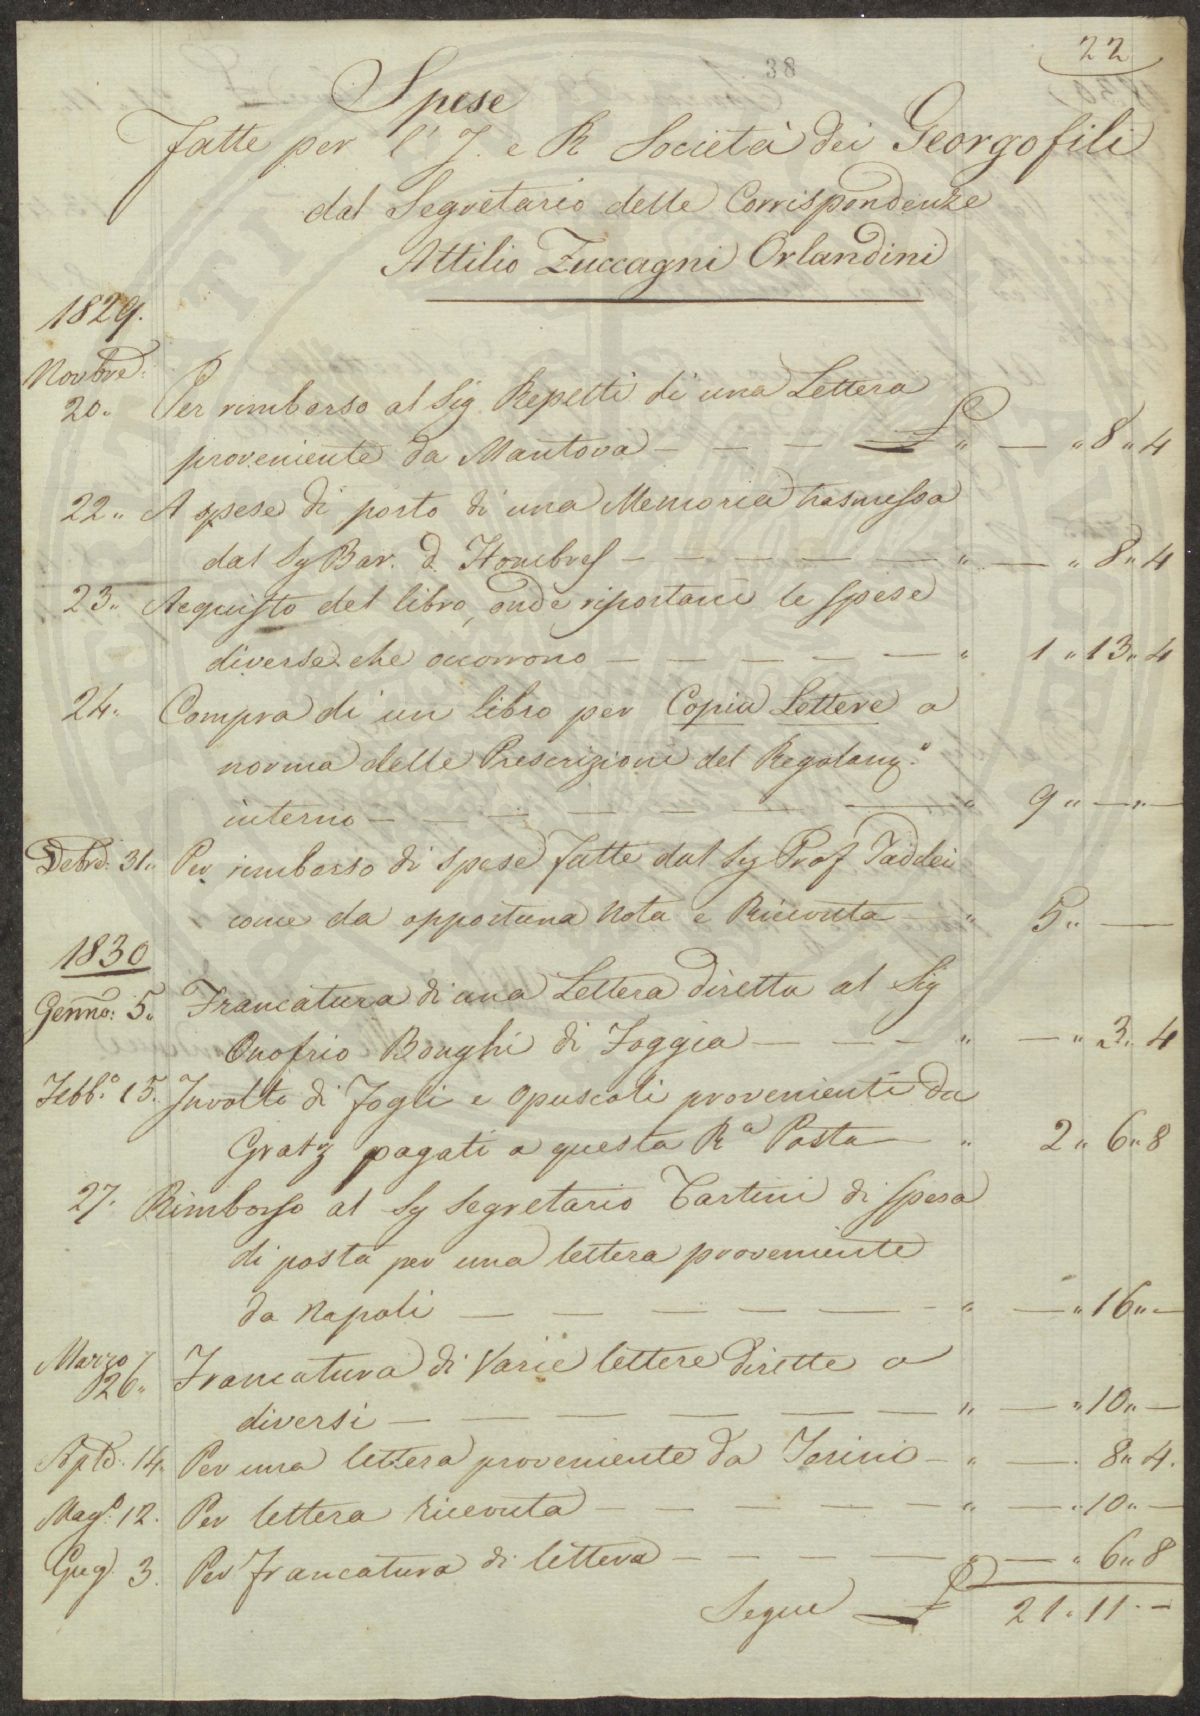 22
38
Spese
Fatte per l' I. e R Società dei Georgofili
dal Segretario delle Corrispondenze
Attilio Zuccagni Orlandini
1829.
Novbre:
20. Per rimborso al Sig Repetti di una Lettera
proveniente da Mantova — — — £ " — " 8 " 4
22. A spese di porto di una Memoria trasmessa
dal Sg Bar. d Hombres — — — — — " — " 8 " 4
23. Acquisto del libro, onde riportarci le spese
diverse che occorrono — — — — — " 1 " 13 " 4
24. Compra di un libro per Copia Lettere a
norma delle Prescrizioni del Regolam.o
interno — — — — — — " 9 " — " —
Debre. 31. Per rimborso di spese fatte dal Sg Prof Taddei
come da opportuna Nota e Ricevuta — " 5 " —
1830
Genno: 5. Francatura di una Lettera diretta al Sig
Onofrio Bonghi di Foggia — — — " — " 3 " 4
Febb.o 15. Involto di Fogli e Opuscoli provenienti da
Gratz pagati a questa R.a Posta — " 2 " 6 " 8
27. Rimborso al Sg Segretario Tartini di spesa
di posta per una lettera proveniente
da Napoli — — — — — — " — " 16 " —
Marzo
26. Francatura di Varie lettere dirette a
diversi — — — — — — — " — " 10 " —
Aple. 14. Per una lettera proveniente da Torino — " — " 8 " 4.
Mago. 12. Per lettera ricevuta — — — — — " — " 10 " —
Giug. 3. Per Francatura di lettera — — — — " — " 6 " 8
Segue £ 21 " 11 " —